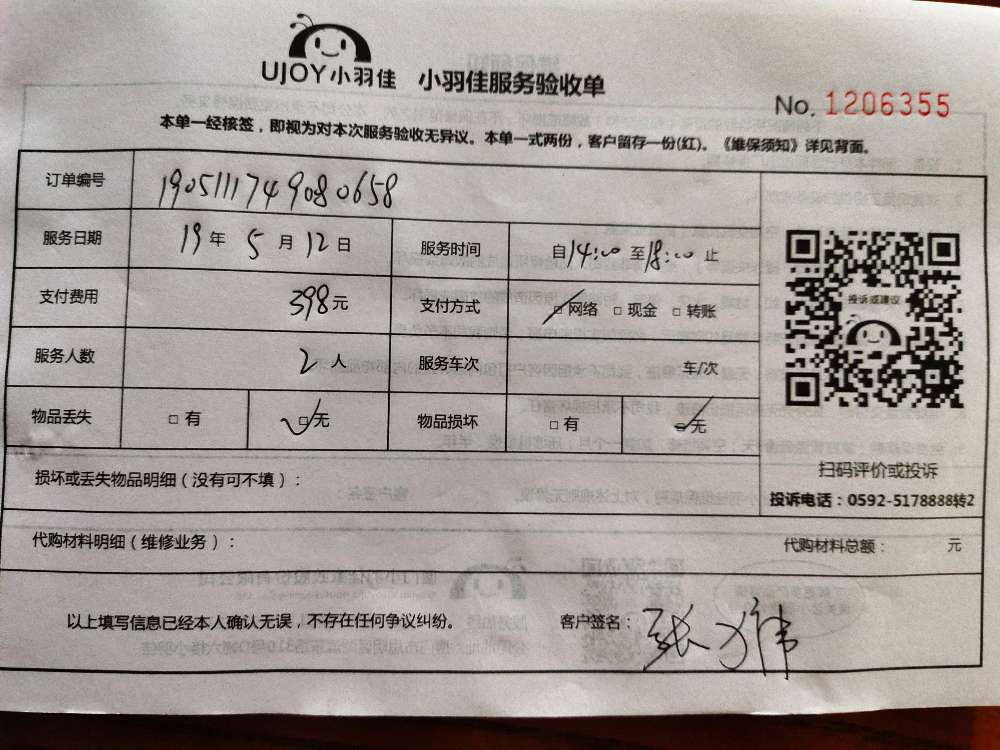 UJOY小羽佳 小羽佳服务验收单
No. 1206355
本单一经核签，即视为对本次服务验收无异议。本单一式两份，客户留存一份(红)。《维保须知》详见背面。
订单编号 1905111749080658
服务日期 19年5月12日 服务时间 自14:00至18:00止
投诉或建议
支付费用 398元 支付方式 □网络 □现金 □转账
服务人数 2人 服务车次 车/次
物品丢失 □有 □无 物品损坏 □有 □无
扫码评价或投诉
损坏或丢失物品明细（没有可不填）：
投诉电话：0592-5178888转2
代购材料明细（维修业务）： 代购材料总额： 元
以上填写信息已经本人确认无误，不存在任何争议纠纷。 客户签名：张